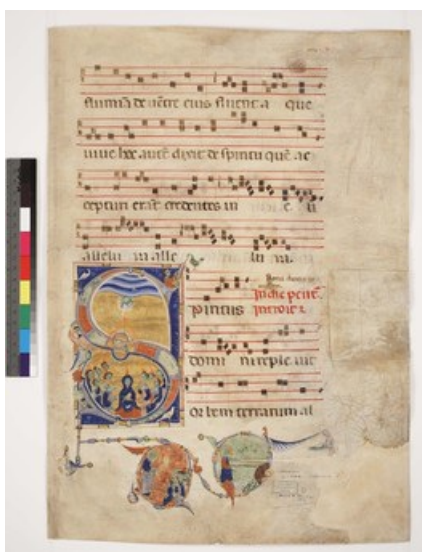 flumina de uētre eius fluent a que
uiue hoc autē dixit de spiritu quē ac
cepturi erāt credentes in
alle
Spiritus In die pent̄
introit
domi ni reple uit
or bem terrarum al